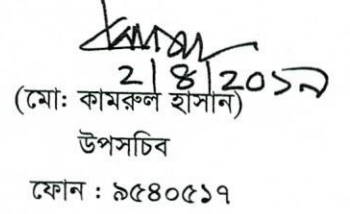 2|8|20১৯
(মো: কামরুল হাসান)
উপসচিব
ফোন : ৯৫৪০৫১৭